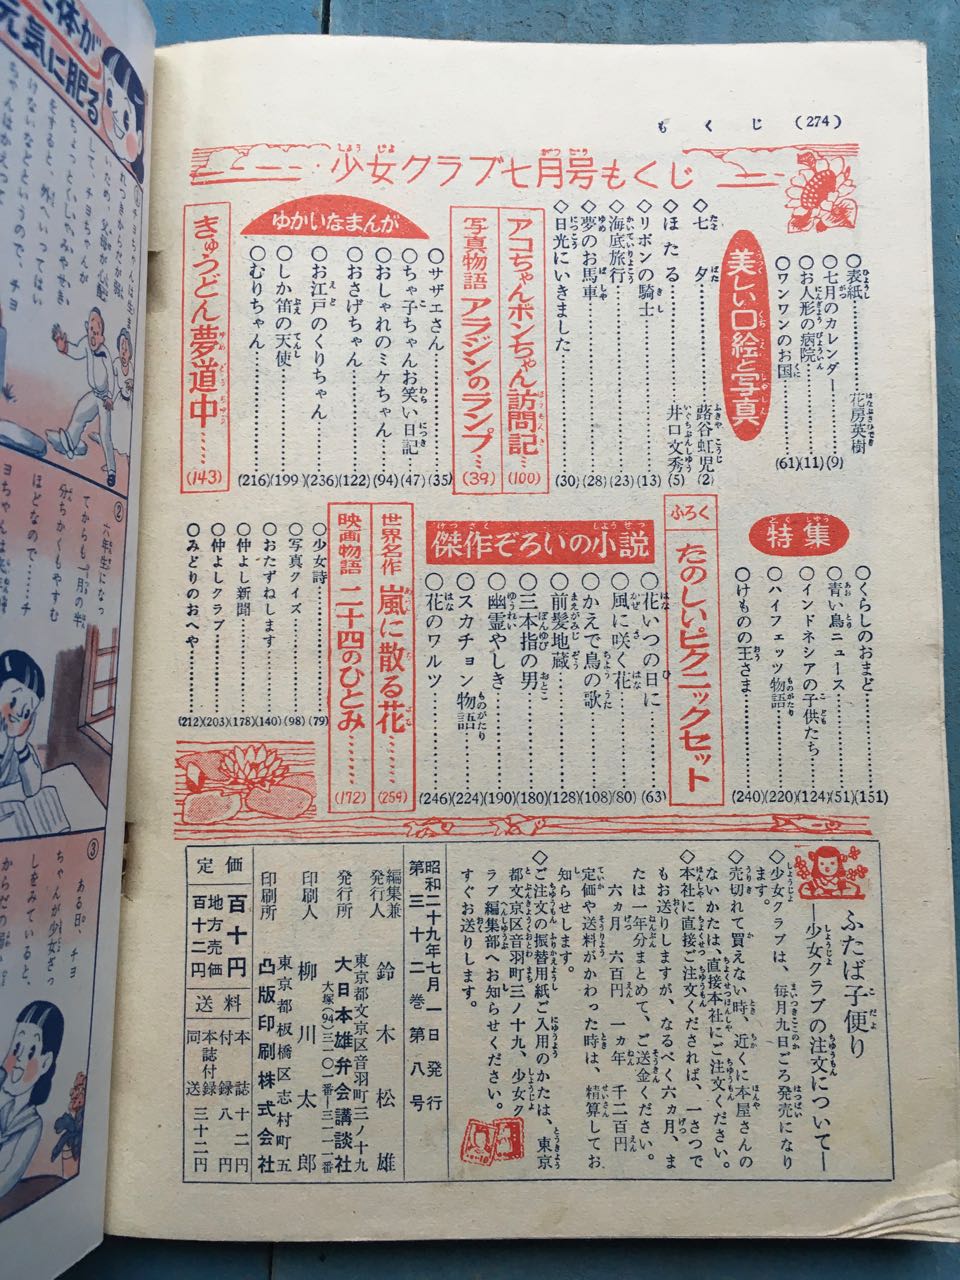 もくじ (274)
少女クラブ七月号もくじ
○表紙……花房英樹
○七月のカレンダー……(9)
○お人形の病院……(11)
○ワンワンのお国……(61)
美しい口絵と写真
◇七夕……蕗谷虹児(2)
◇ほたる……井口文秀(5)
◇リボンの騎士……(13)
◇海底旅行……(23)
◇夢のお馬車……(28)
◇日光にいきました……(30)
アコちゃんボンちゃん訪問記…(100)
写真物語 アラジンのランプ…(39)
ゆかいなまんが
○サザエさん……(35)
○ちゃ子ちゃんお笑い日記……(47)
○おしゃれのミケちゃん……(94)
○おさげちゃん……(122)
○お江戸のくりちゃん……(236)
○しか笛の天使……(199)
○むりちゃん……(216)
きゅうどん夢道中……(143)
特集
○くらしのおまど……(151)
○青い鳥ニュース……(51)
○インドネシアの子供たち……(124)
○ハイフェッツ物語……(220)
○けものの王さま……(240)
ふろく たのしいピクニックセット
傑作ぞろいの小説
○花いつの日に……(63)
○風に咲く花……(80)
○かえで鳥の歌……(108)
○前髪地蔵……(128)
○三本指の男……(180)
○幽霊やしき……(190)
○スカチョン物語……(224)
○花のワルツ……(246)
世界名作 嵐に散る花……(254)
映画物語 二十四のひとみ……(172)
○少女詩……(79)
○写真クイズ……(98)
○おたずねします……(140)
○仲よし新聞……(178)
○仲よしクラブ……(203)
○みどりのおへや……(212)
ふたば子便り
―少女クラブの注文について―
◇少女クラブは、毎月九日ごろ発売になり
ます。
◇売切れて買えない時、近くに本屋さんの
ないかたは、直接本社にご注文ください。
◇本社に直接ご注文くだされば、一さつで
もお送りしますが、なるべく六ヵ月、ま
たは一年分まとめて、ご送金ください。
六ヵ月 六百円 一ヵ年 千二百円
定価や送料がかわった時は、精算してお
知らせします。
◇ご注文の振替用紙ご入用のかたは、東京
都文京区音羽町三ノ十九、少女ク
ラブ編集部へお知らせください。
すぐお送りします。
昭和二十九年七月一日発行
第三十二巻第八号
編集兼発行人 鈴木松雄
東京都文京区音羽町三ノ十九
発行所 大日本雄弁会講談社
大塚(94)三一〇一番―三一二一番
印刷人 柳川太郎
東京都板橋区志村町五
印刷所 凸版印刷株式会社
定価 百十円
地方売価 百十二円
送料
本誌 十二円
付録 八円
本誌付録同送 三十二円
体が
元気に肥る